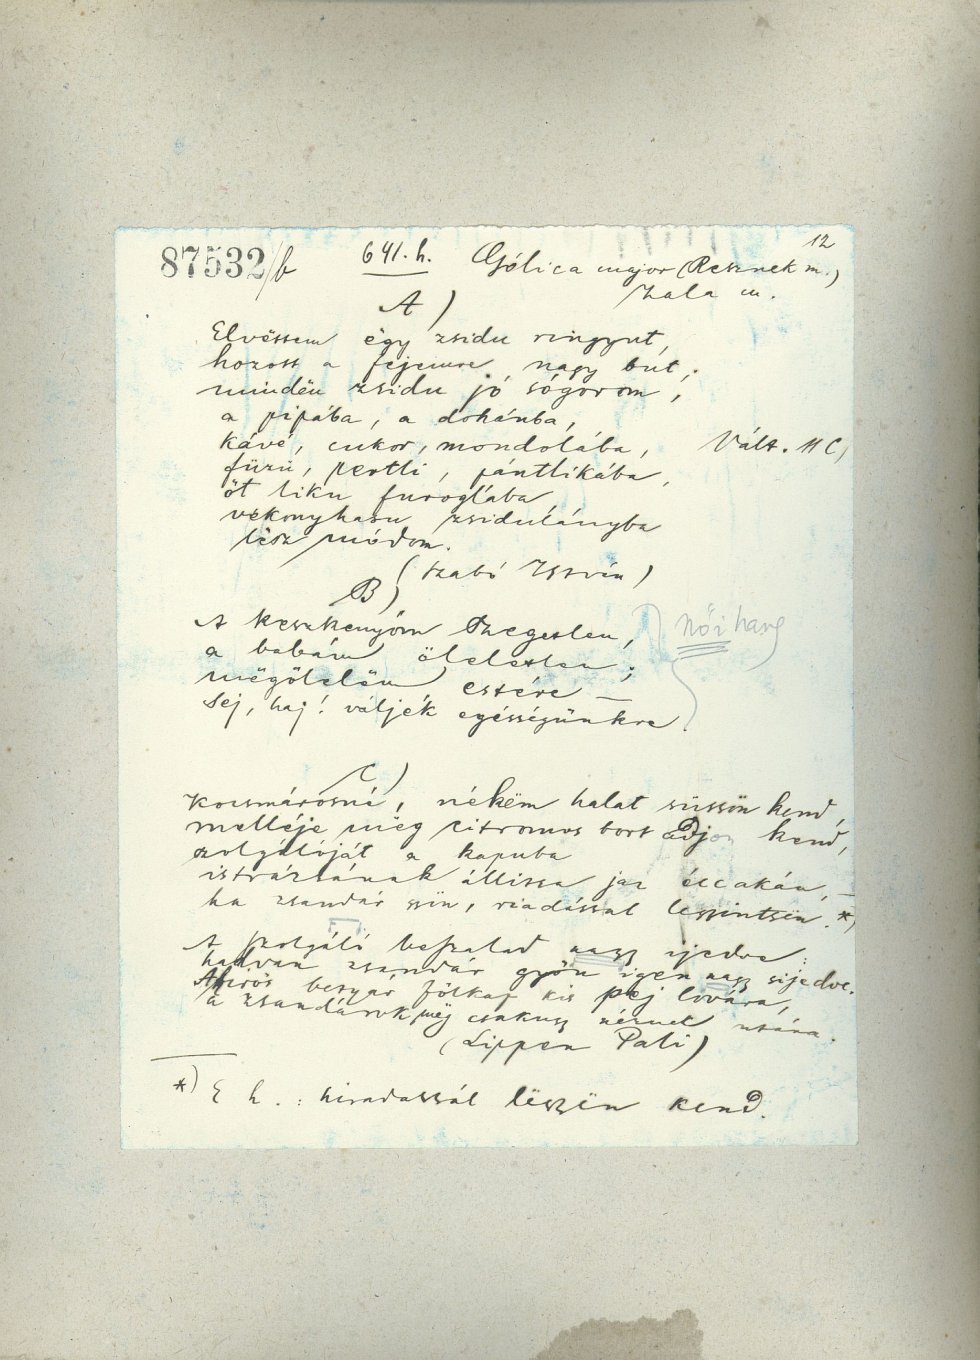 12
87532/b 641. h. Gólica major (Resznek m.)
Zala m.
A)
Elvëssem ëgy zsidu ringyut,
hozott a fejemre nagy bút;
mindën zsidu jó sógorom,
a pipába, a dohánba,
kávé, cukor, mondolába, Vált. C)
füzü, pertli, pántlikába,
öt liku furoglába
vékonyhasu zsidulányba
lësz módom.
(Szabó István)
B)
A keszkenyőm szegetlen,
a babám öleletlen;
mëgölelëm estére —
Sej, haj! váljék egésségünkre.
Női hang
C)
Kocsmárosné, nékëm halat süssön kend,
melléje mëg citromos bort adjon kend,
szolgálóját a kapuba
istrázsának állissa jaz éccakán, —
ha zsandár gyün, riadással legyintsën. *)
A szolgáló beszalad nagy ijedve:
hadvan zsandár gyön igen nagy sijedve.
A hirös betyár fölkap kis pej lovára,
a zsandárok mëg csakugy néznek utána.
(Lippen Pali)
*) E h.: hiradassál lëgyën kend.